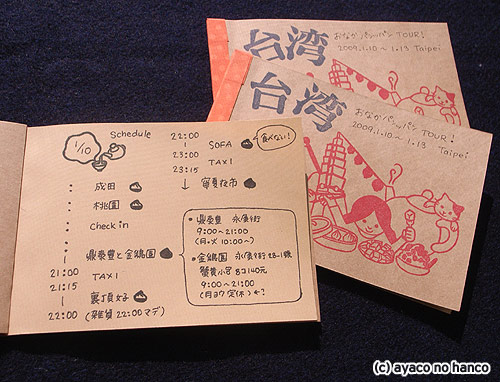 台湾
おなかパンパン TOUR!
2009.1.10 ~ 1.13 Taipei
台湾
おなかパンパン TOUR!
2009.1.10 ~ 1.13 Taipei
1/10
Schedule
成田
桃園
check in
鼎泰豊と金鶏園
21:00
TAXI
21:15
22:00 (雑貨 22:00マデ)
22:00
SOFA
食べない!
23:00
TAXI
23:15
↓ 寧夏夜市
• 鼎泰豊 永康街
9:00~21:00
(月.火 10:00~)
• 金鶏園 永康街28-1號
蟹黄小包 8コ140元
9:00~21:00
(月ヨウ定休) ←?
(c) ayaco no hanco